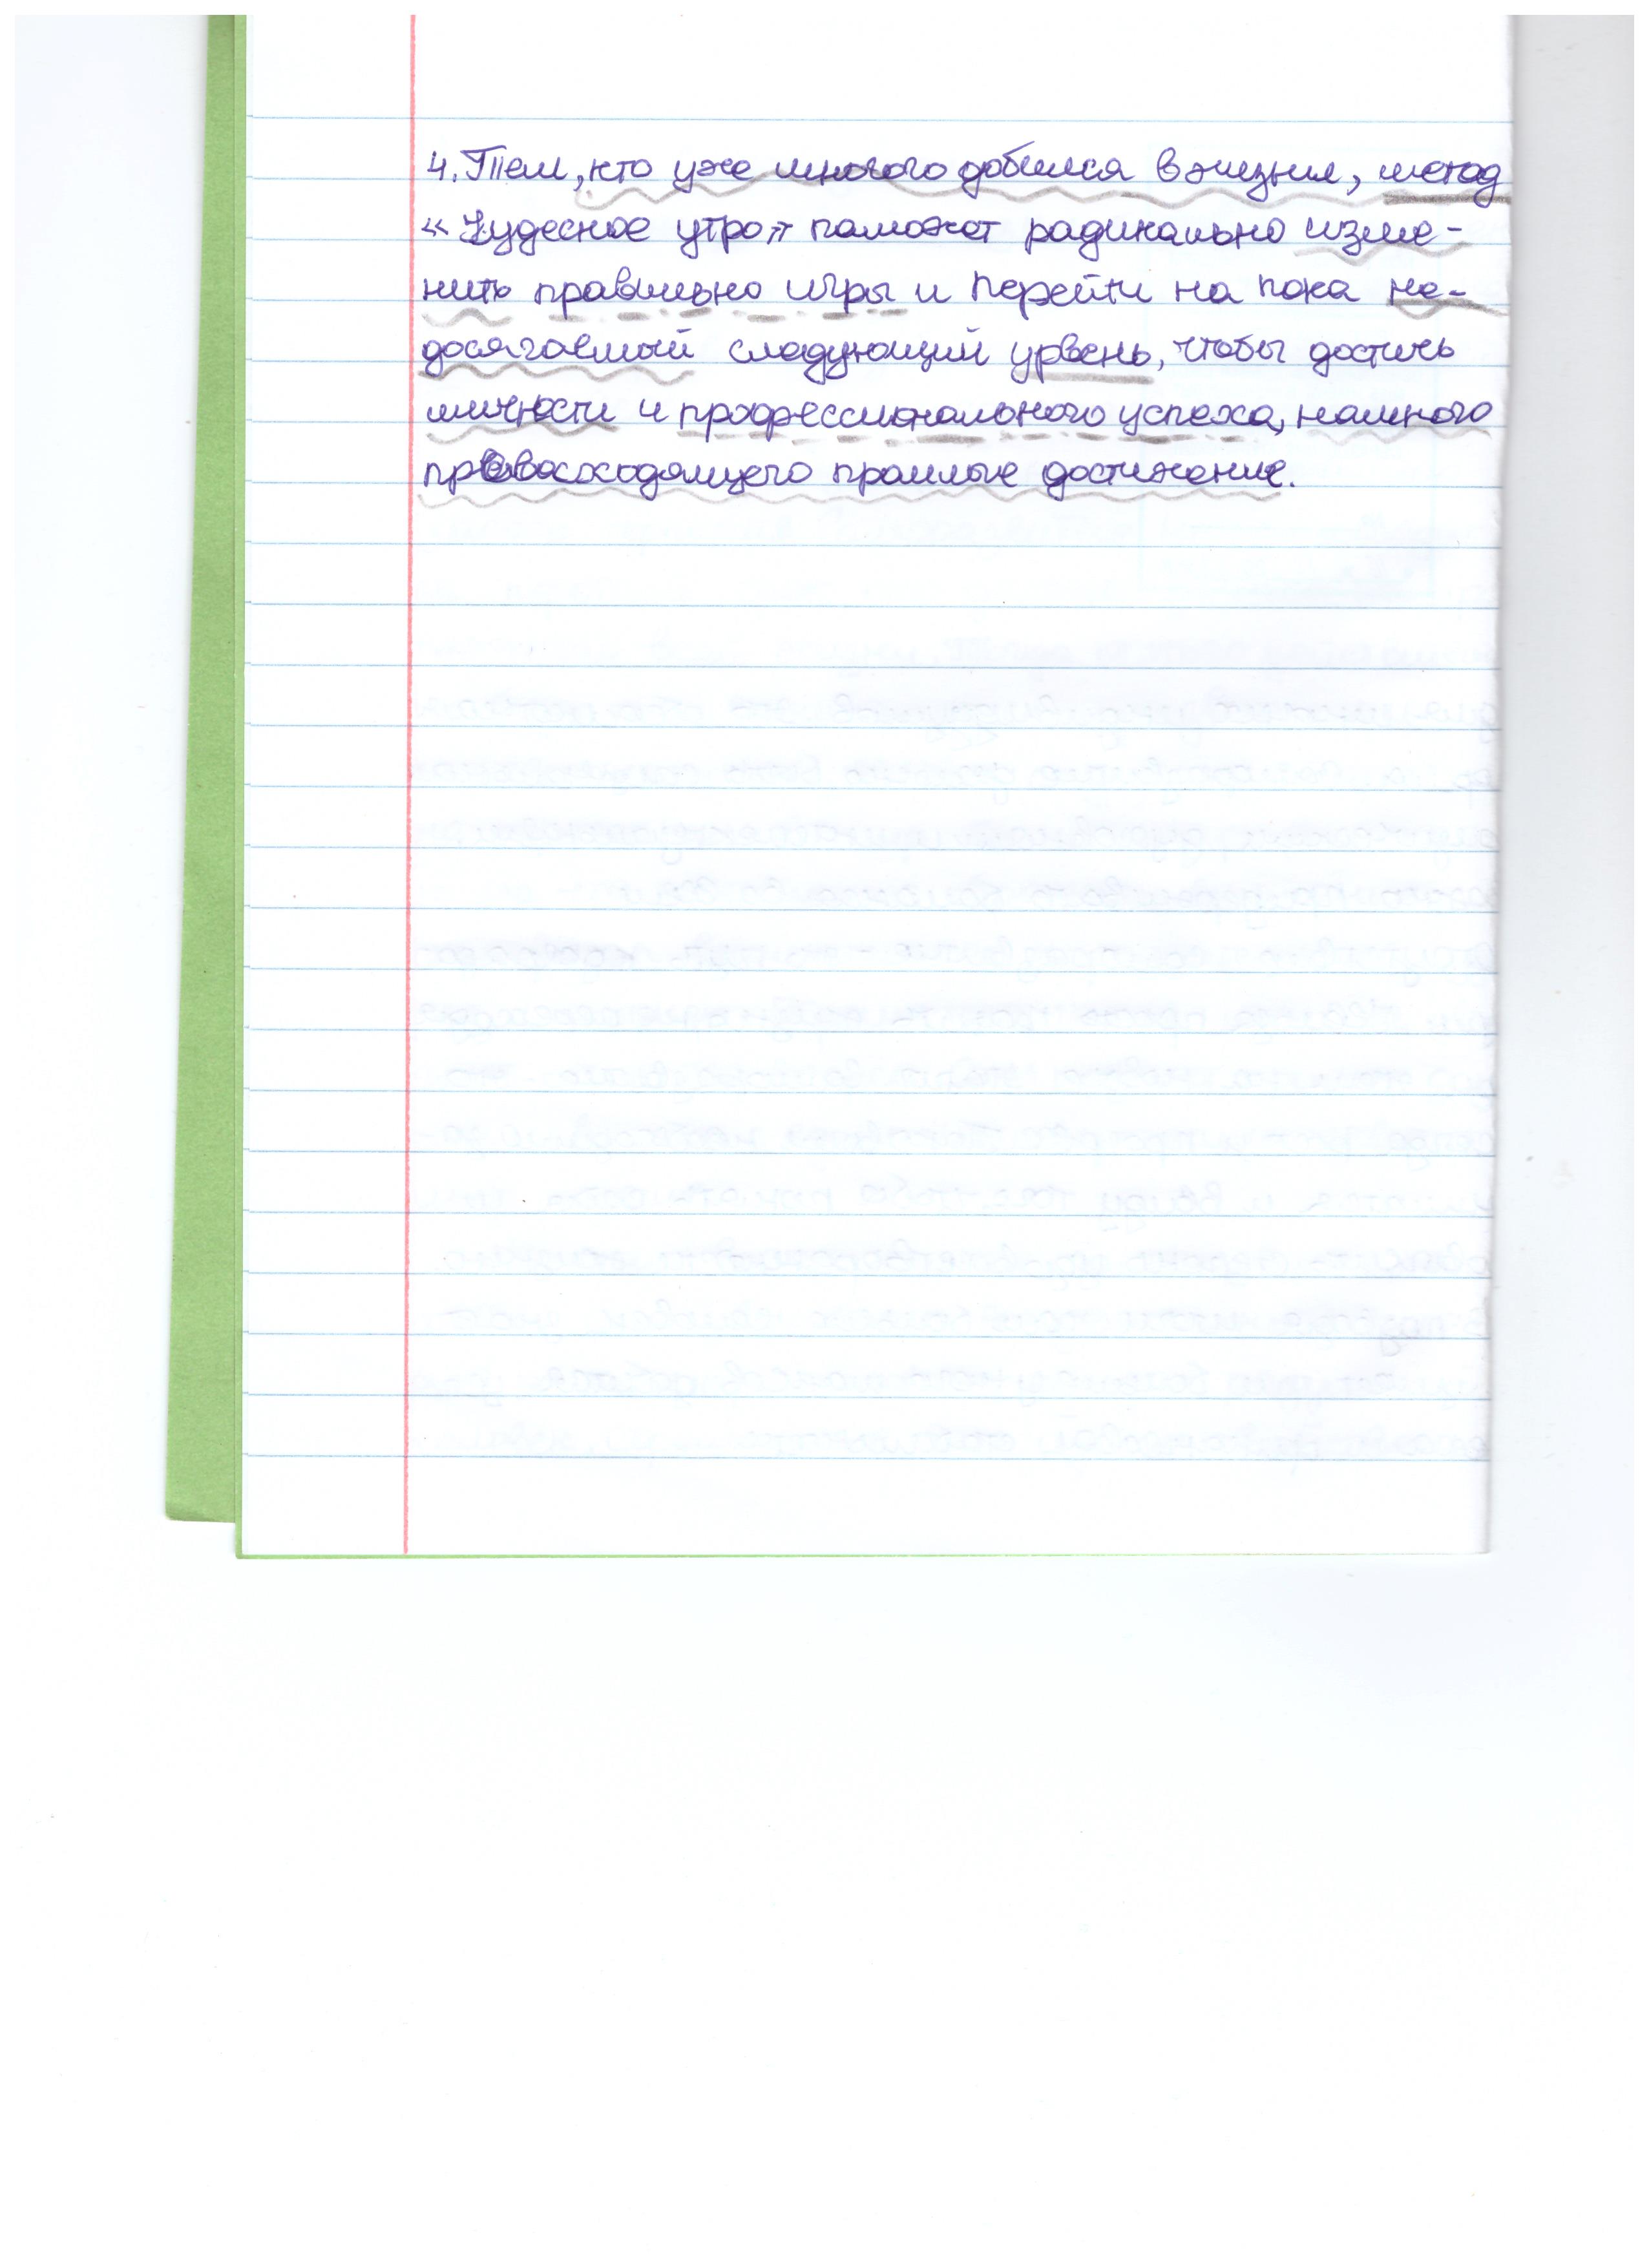 4. Тем, кто уже многого добился в жизни, метод
«Чудесное утро» поможет радикально изме-
нить правильно игры и перейти на пока не-
досягаемый следующий урвень, чтобы достичь
личности и профессионального успеха, намного
превосходящего прошлые достижение.